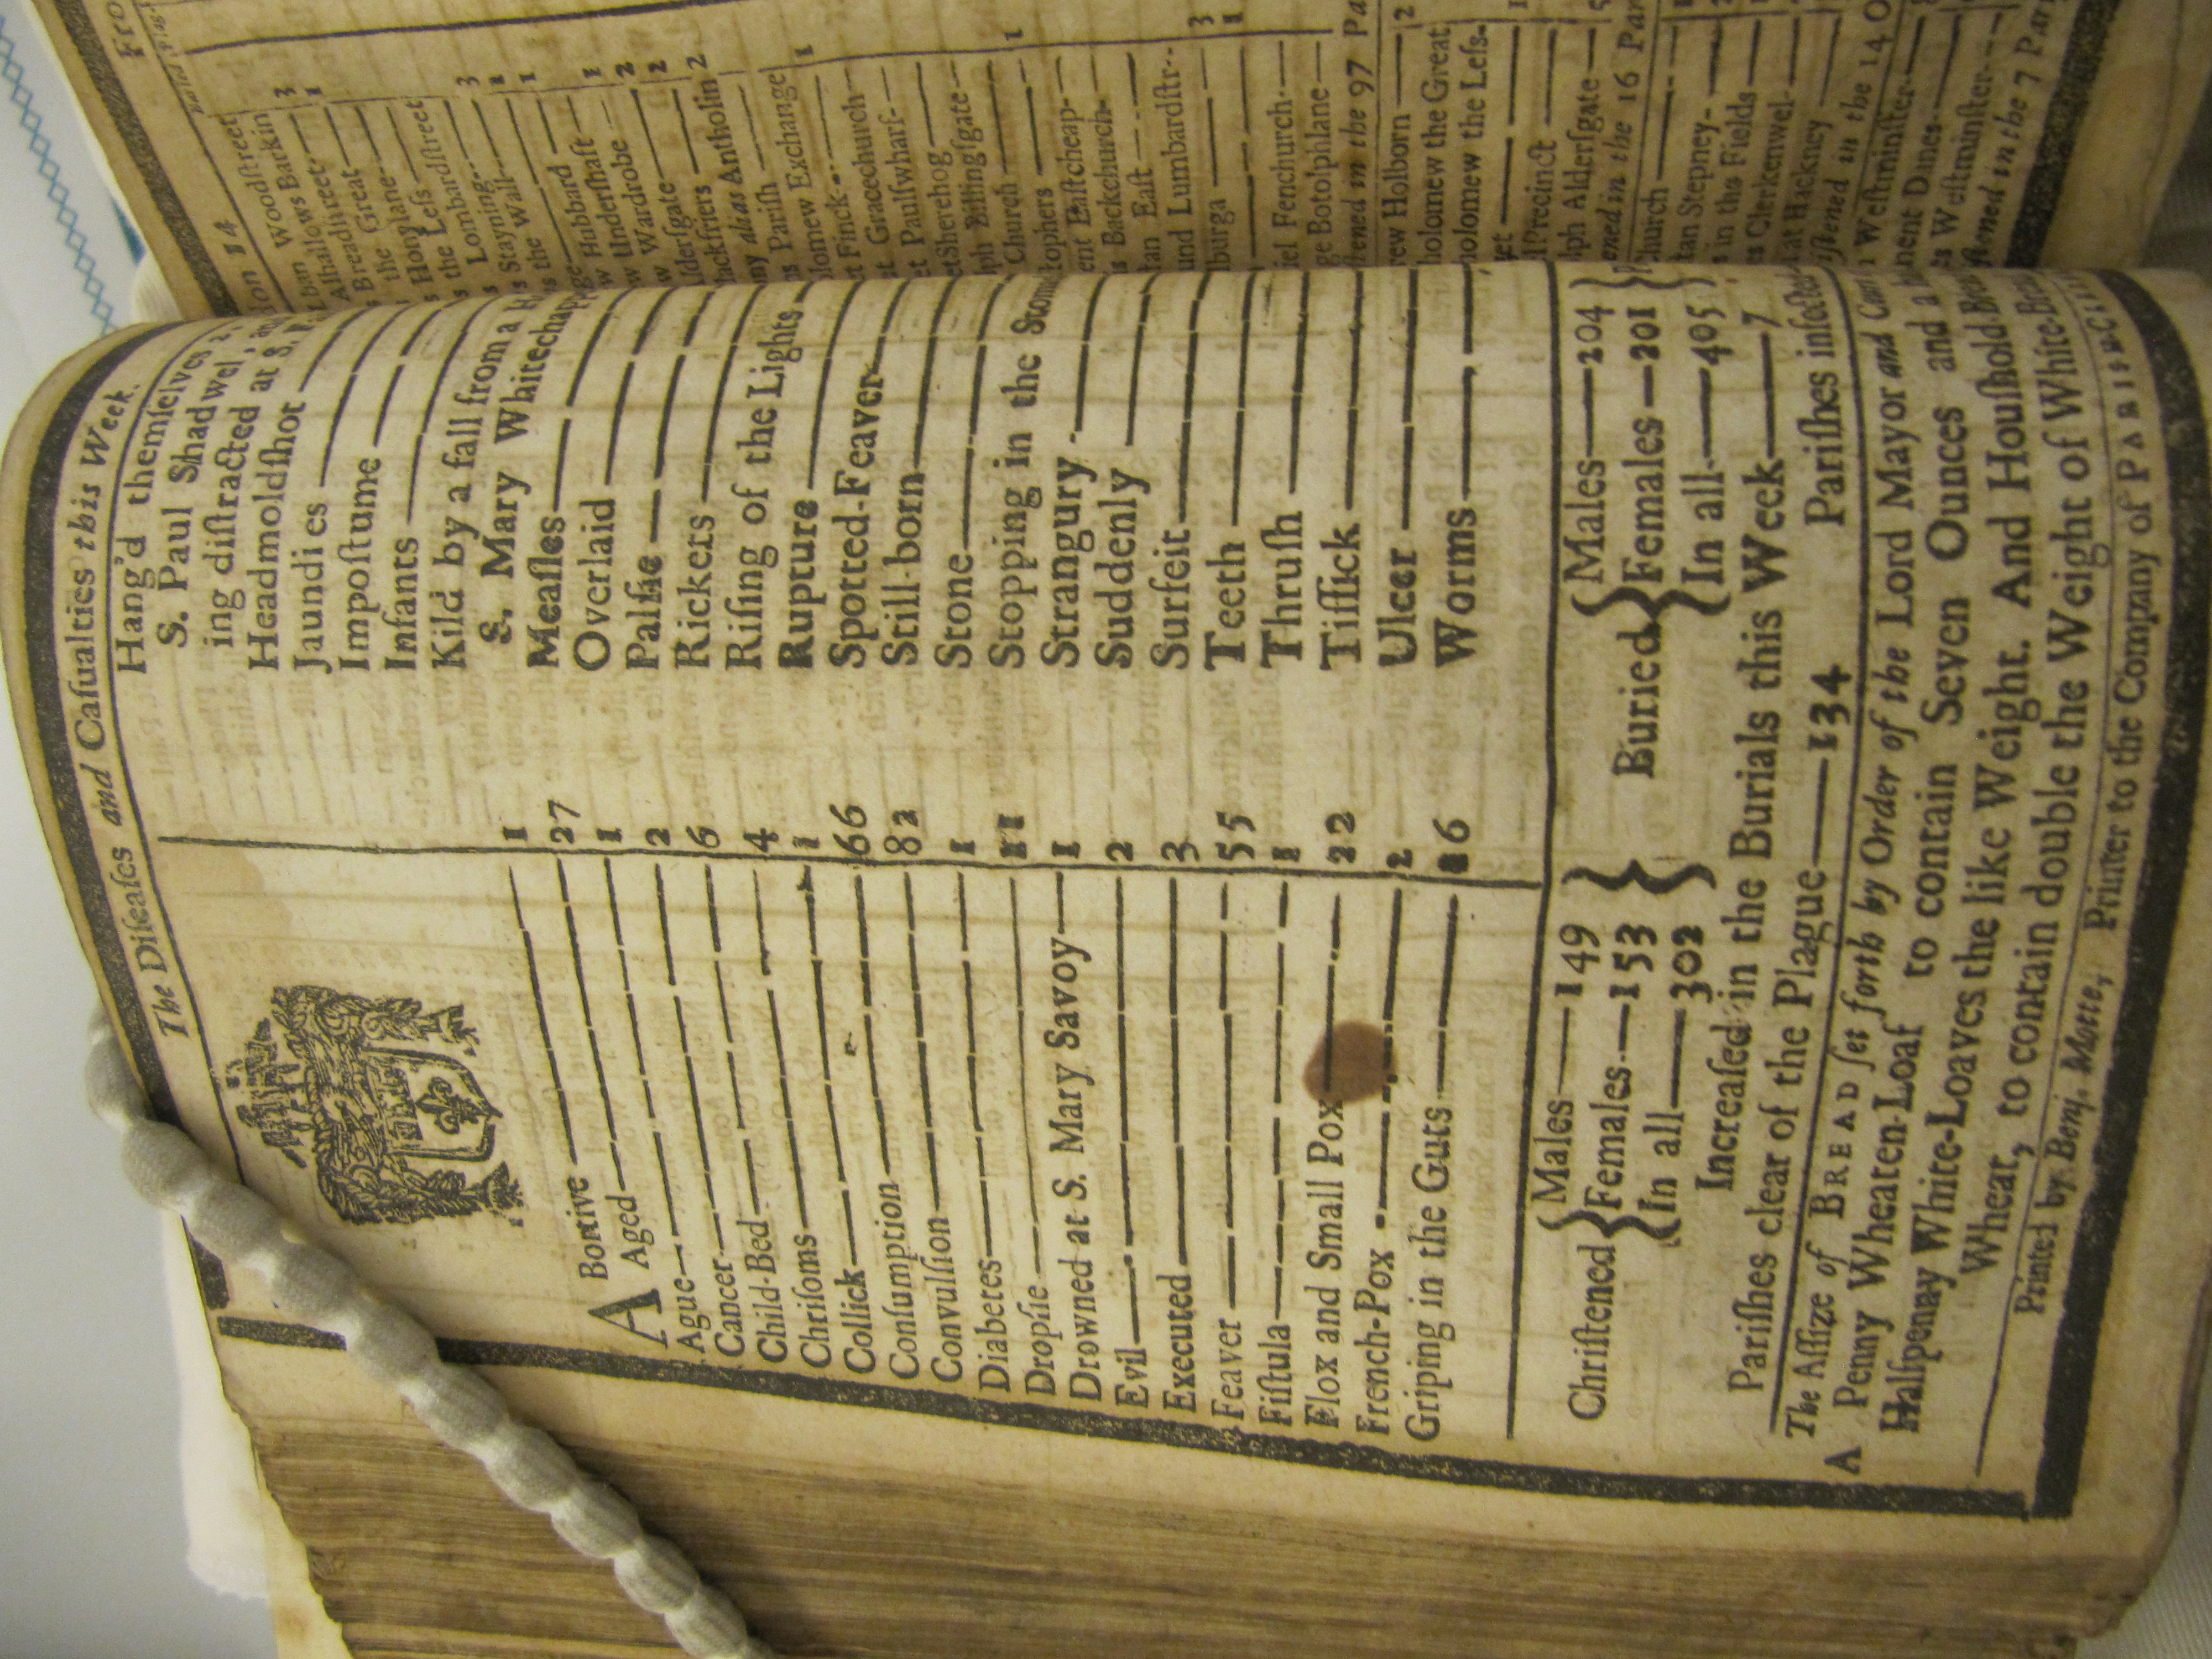 The Diſeaſes and Caſualties this Week.
A Bortive 1
Aged 27
Ague 1
Cancer 2
Child-Bed 6
Chriſoms 4
Collick 1
Conſumption 66
Convulſion 82
Diabetes 1
Dropſie 11
Drowned at S. Mary Savoy 1
Evil 2
Executed 3
Feaver 55
Fiſtula 1
Flox and Small Pox 22
French-Pox 2
Griping in the Guts 16
Hang'd themſelves
S. Paul Shadwel,
ing diſtracted at S.
Headmoldſhot
Jaundies
Impoſtume
Infants
Kild by a fall from a
S. Mary Whitechap
Meaſles
Overlaid
Palſie
Rickers
Riſing of the Lights
Rupture
Spotted-Feaver
Still-born
Stone
Stopping in the Stom
Strangury
Suddenly
Surfeit
Teeth
Thruſh
Tiſſick
Ulcer
Worms
Chriſtened { Males—149
Females—153
In all—302 }
Buried { Males—204
Females—201
In all—405 }
Increaſed in the Burials this Week—7
Pariſhes clear of the Plague—134 Pariſhes infected
The Aſſize of BREAD ſet forth by Order of the Lord Mayor and
A Penny Wheaten-Loaf to contain Seven Ounces and a
Halfpenny White-Loaves the like Weight. And Houſhold
Whear, to contain double the Weight of White
Printed by Benj. Motte, Printer to the Company of PARISH-
Fro
ion 14
ban Woodſtreet
Alhallows Barkin 3
Breadſtreet 1
the Great
Honylane
the Leſs
Lombardſtreet
Lombardſtreet
Stayning 3
the Wall 1
Hubbard
Underſhaft 1
Wardrobe 2
Alderſgate 2
lackfriers 2
ny alias Antholin
ns Pariſh
lomew Exchange 1
t Finck
t Gracechurch
t Paulſwharf
etSherehog
lph Billingſgate
Church 1
tophers
ent Eaſtcheap
s Backchurch
tan Eaſt
und Lumbardſtr 3
burga 1
iel Fenchurch
ge Botolphlane
ened in the 97 Pa
rew Holborn 2
holomew the Great
holomew the Leſs
et
l Precinct
lph Alderſgate
ened in the 16 Par
hurch
tan Stepney
s in the Fields
s Clerkenwel
at Hackney
iſtened in the 14 O
Weſtminſter
ment Dines
s Weſtminſter
ſtened in the 7 Par